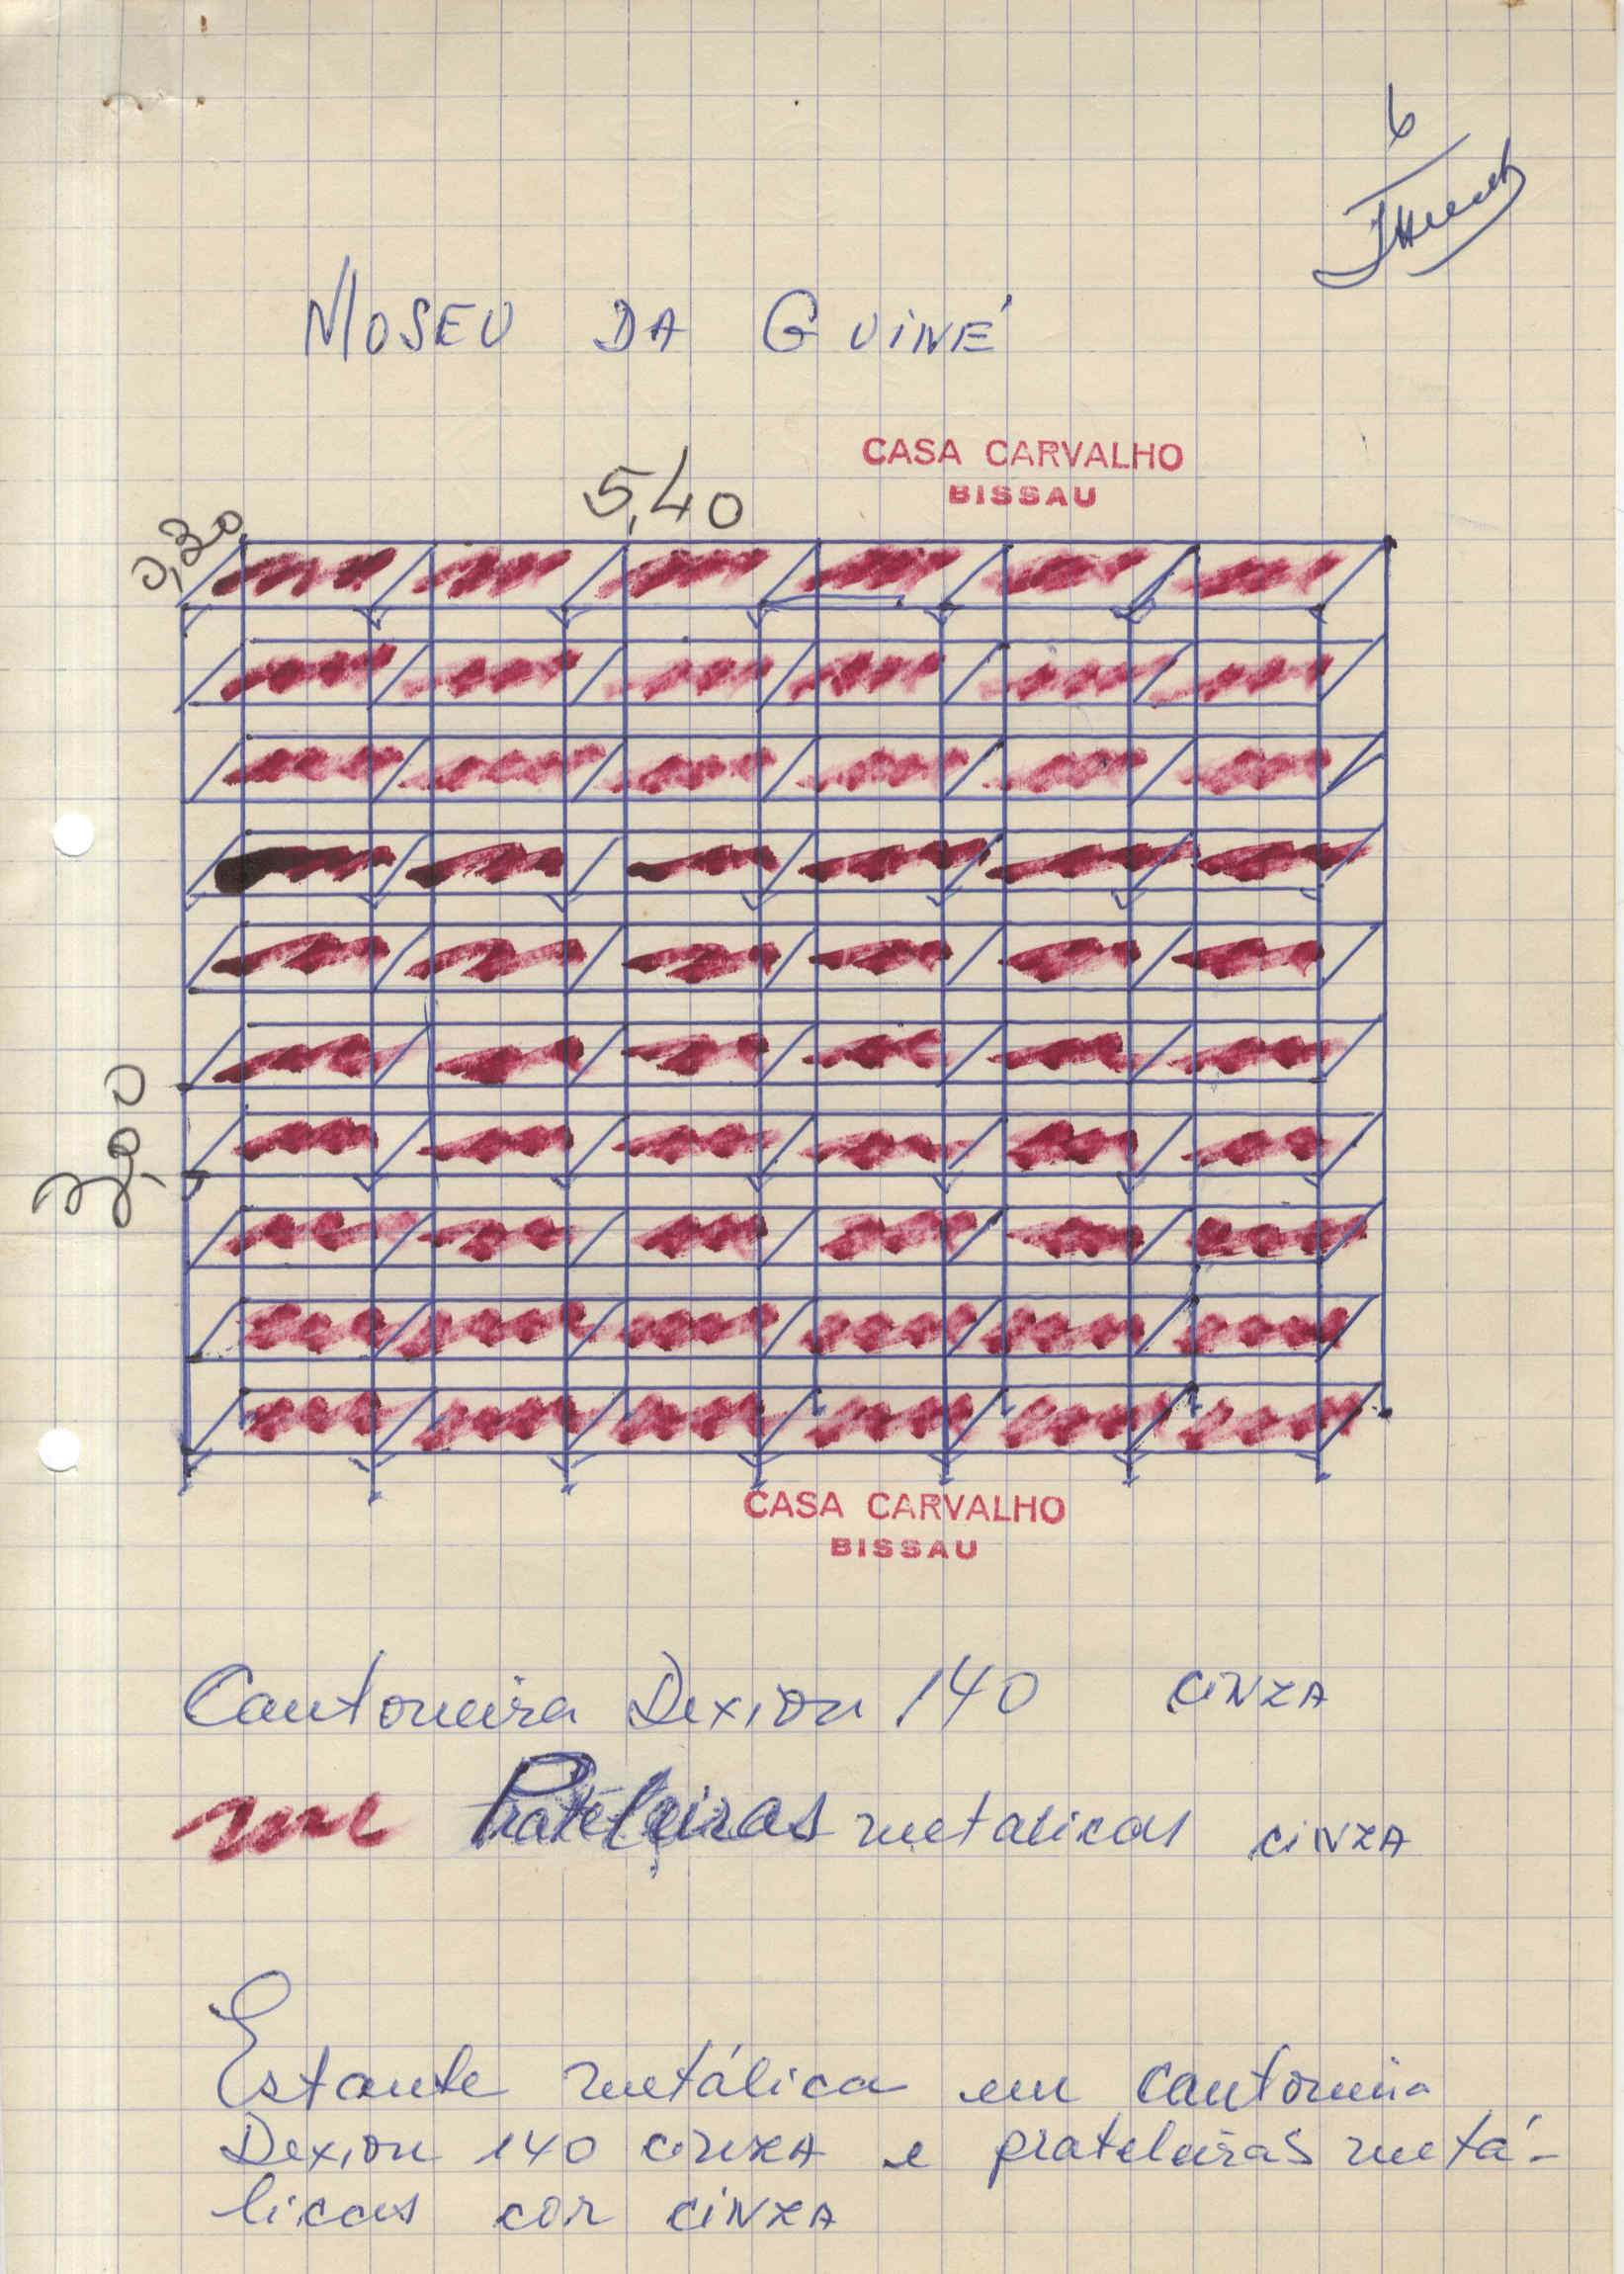 6
MUSEU DA GUINÉ
CASA CARVALHO
BISSAU
5,40
0,30
CASA CARVALHO
BISSAU
Cantoneira Dexion 140 CINZA
Prateleiras metalicas CINZA
Estante metálica em cantoneira
Dexion 140 CINZA e prateleiras metá-
licas cor CINZA